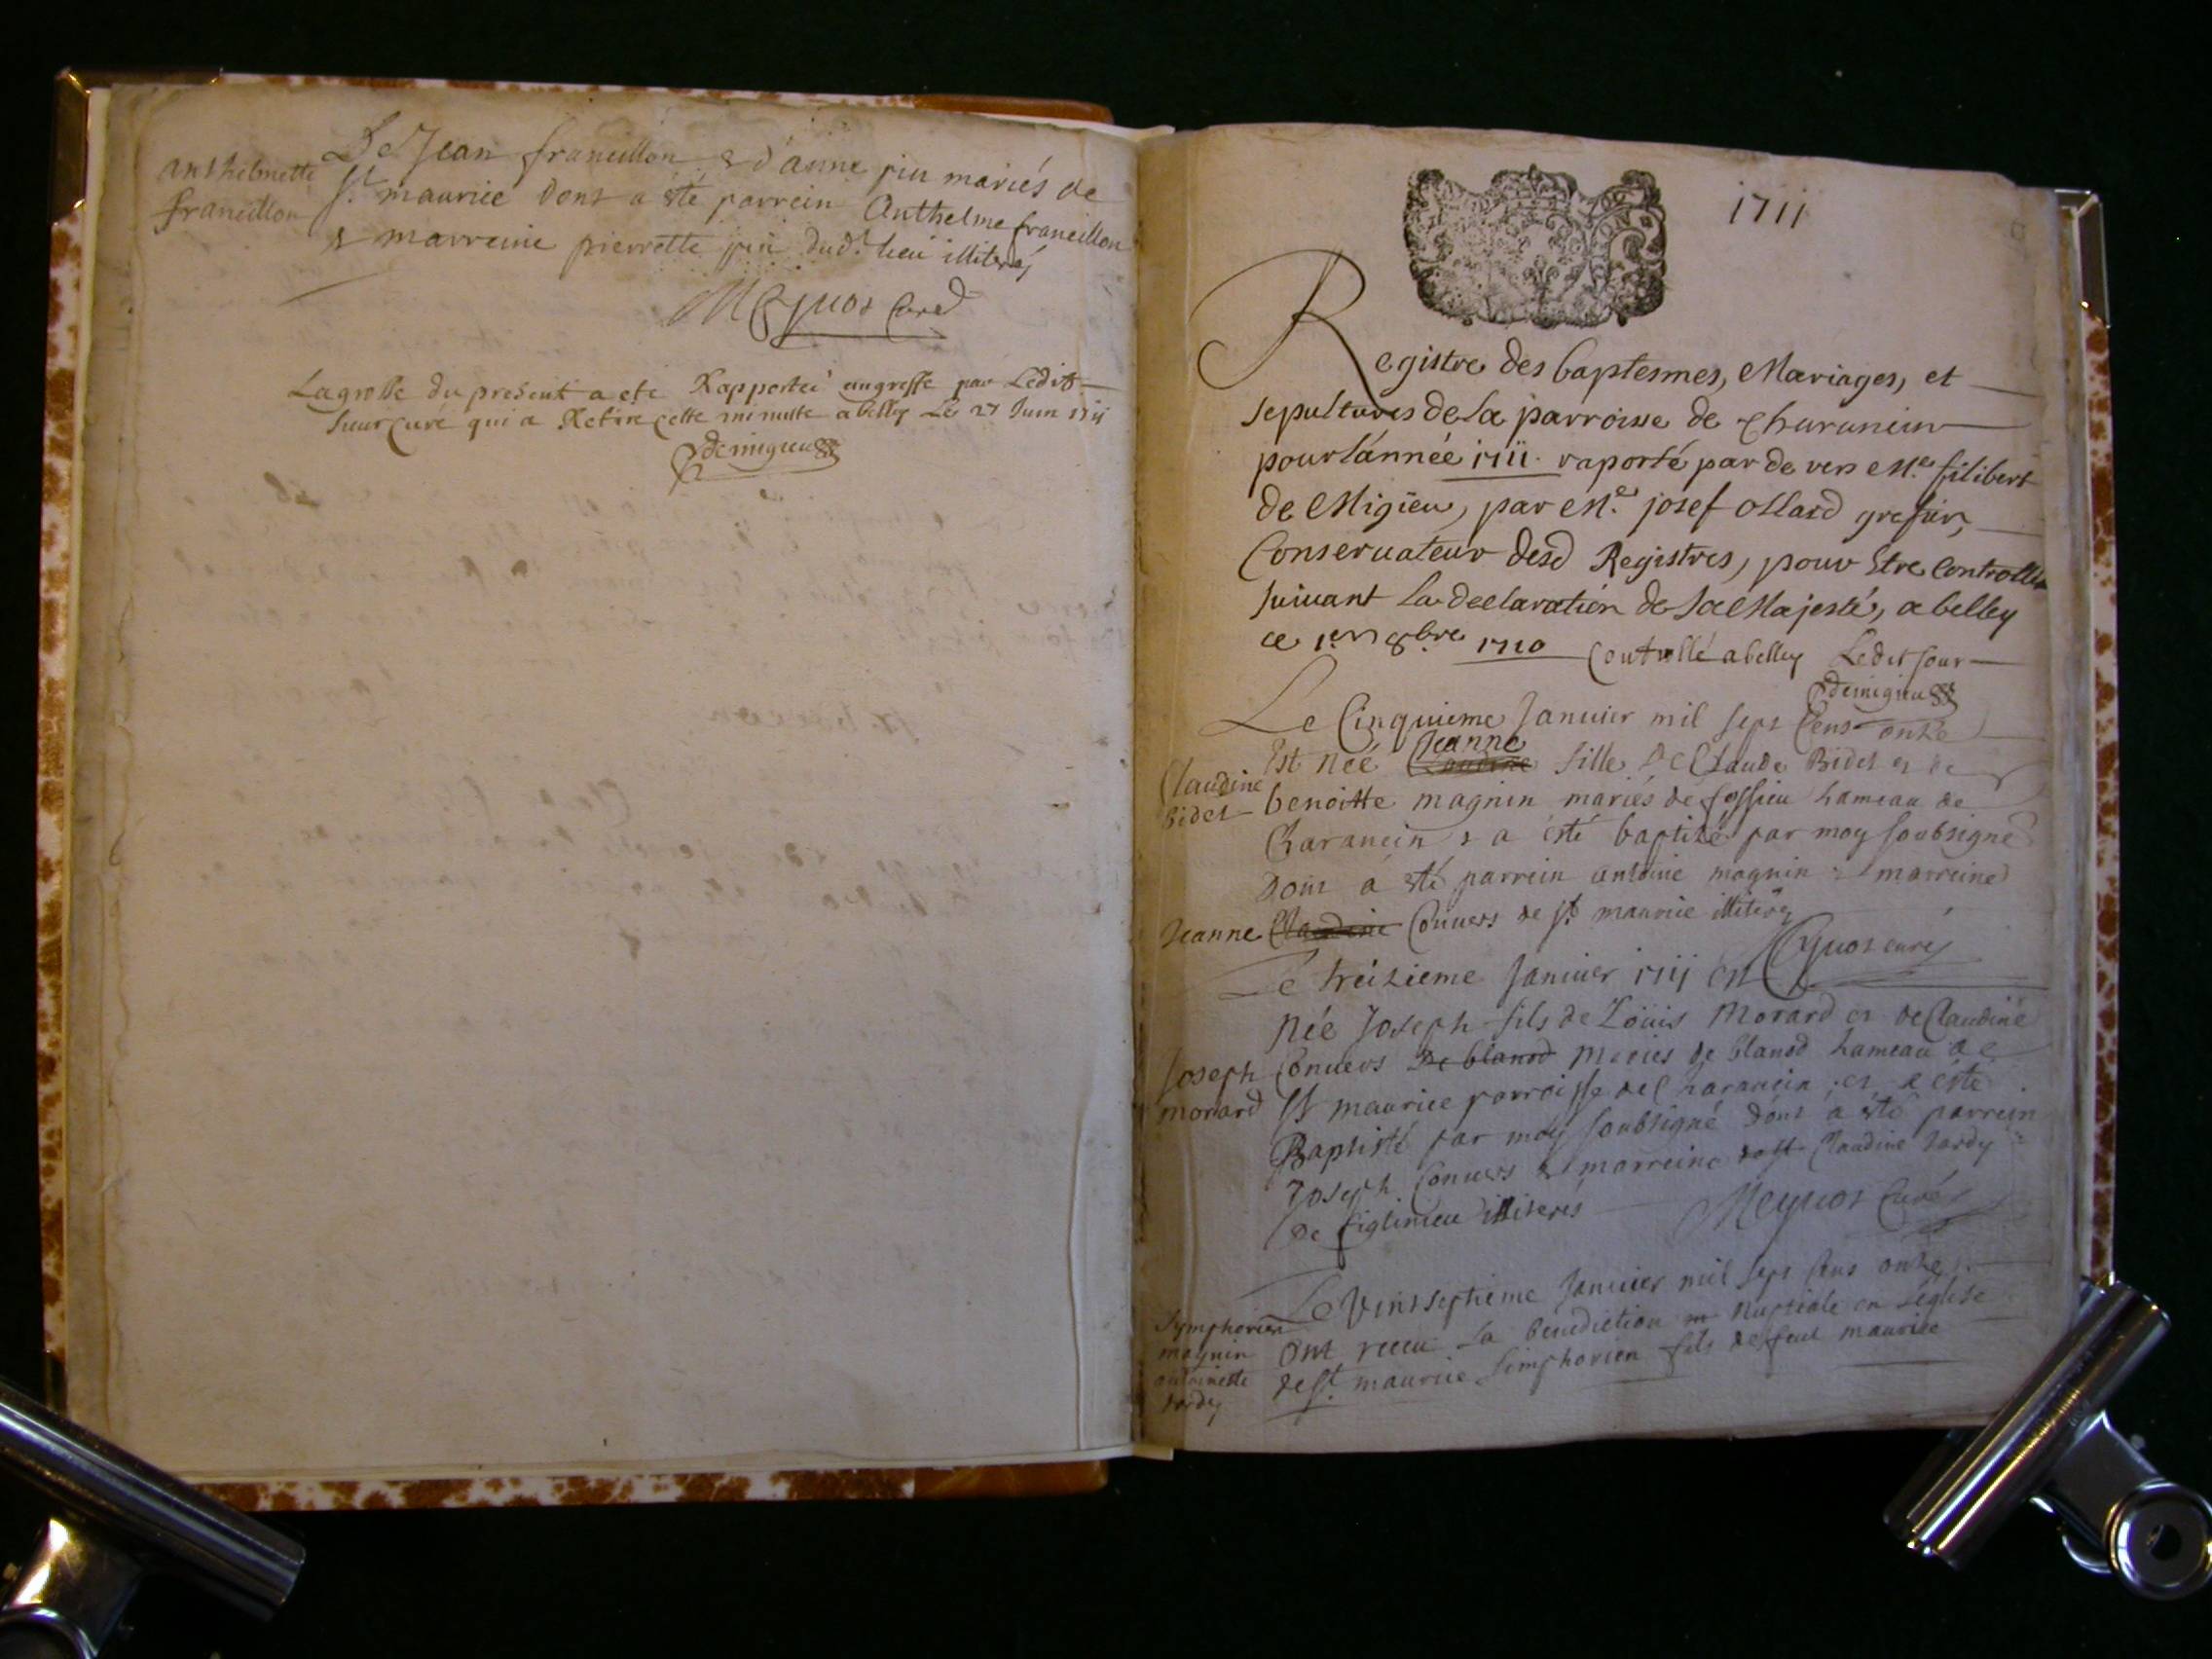 De Jean francillon & d'anne piu mariés de
anthelmette
francillon
St. maurice dont a été parrein Anthelme francillon
& marreine pierrette piu dud. lieu illiterés
Meynos Curé
La grosse du present a ete Rapportée au greffe par Ledit
sieur Curé qui a Retiré cette minutte a belley Le 27 Juin 1711
demigieu
1711
Registre des baptesmes, Mariages, et
sepultures de la parroisse de Charancin
pour lánnée 1711. raporté par de vers Me. filibert
de Migieu, par Me. josef ollard grefier,
Conseruateur desd Registres, pour Etre Controllés
suiuant La declaration de Sa Majesté, a belley
ce 1er. 8bre 1710 Controllé a belley Ledit Jour
demigieu
Le Cinquieme Januier mil sept Cens onze
Est née Jeanne Claudine fille De Claude Bidet et de
Claudine
Bidet
benoitte magnin mariés de fossieu hameau de
Charancin & a esté baptizé par moy soubsigné
Dont a été parrein antoine magnin & marreine
Jeanne Claudine Conuers de St. maurice illiterés
Meynos curé
Le treizieme Januier 1711 est
Née Joseph fils de Loüis Morard et de Claudine
Joseph
morard
Conuers De blanod Mariés de blanod hameau de
St maurice parroisse de Charancin et a esté
Baptisté par moy soubsigné dont a été parrein
Joseph Conuers & marreine Claudine tardy
De illiterés
Meynos Curé
Le Vint septieme Januier mil sept Cens onze
Symphorien
magnin
antoinette
tardy
Ont receu La benediction Nuptiale en Léglise
de St. maurice Simphorien fils de feut maurice